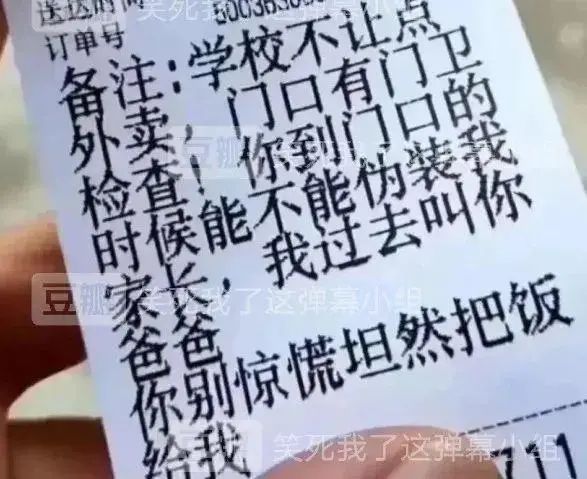 送达时间
订单号
备注：学校不让点
外卖，门口有门卫
检查！你到门口的
时候能不能伪装我
家长，我过去叫你
爸爸
你别惊慌坦然把饭
给我
711
豆瓣 笑死我了这弹幕小组
豆瓣 笑死我了这弹幕小组
豆瓣 笑死我了这弹幕小组